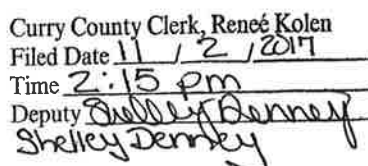 Curry County Clerk, Reneé Kolen
Filed Date 11 / 2 / 2017
Time 2:15 pm
Deputy Shelley Denney
Shelley Denney